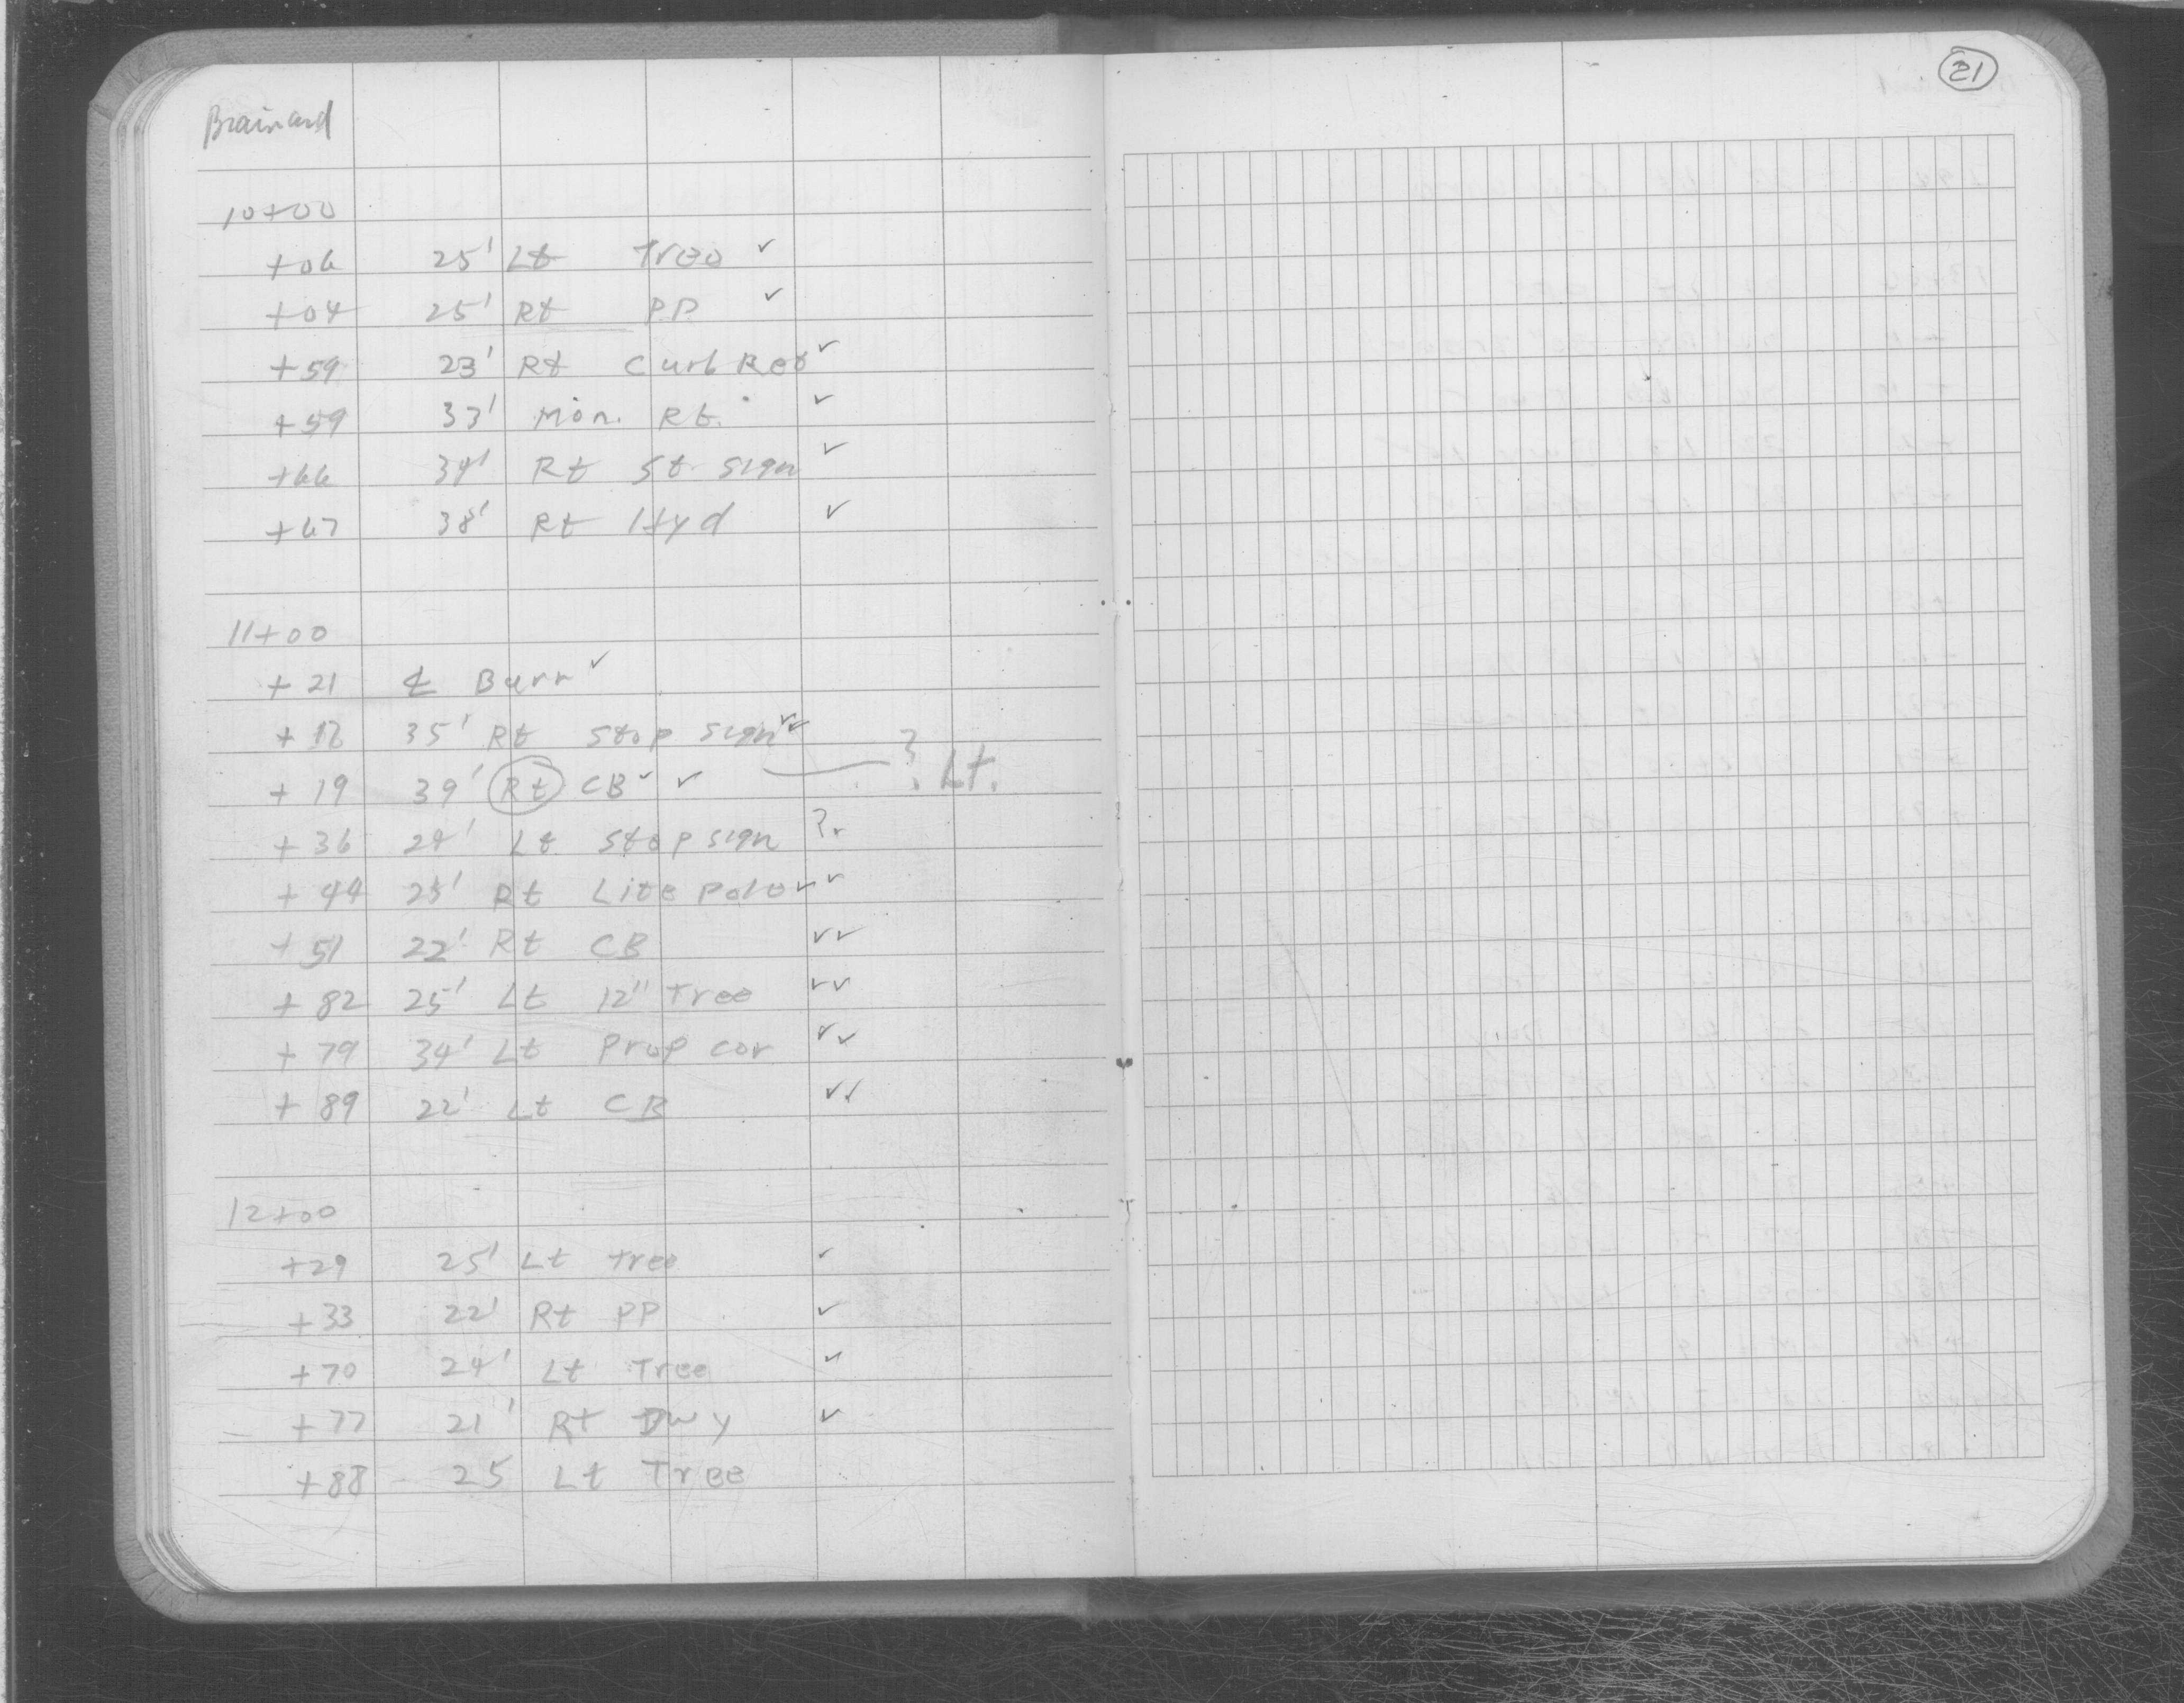 21
Brainard
10+00
+06 25' Lt Tree ✓
+04 25' Rt PP ✓
+59 23' Rt Curb Ret ✓
+59 33' Mon. Rt. ✓
+66 34' Rt St. Sign ✓
+67 38' Rt Hyd ✓
11+00
+21 ℄ Burr ✓
+18 35' Rt Stop Sign ✓✓
+19 39' Rt CB ✓ ✓ ? Lt.
+36 24' Lt Stop sign ?✓
+44 25' Rt Lite Pole ✓✓
+51 22' Rt CB ✓✓
+82 25' Lt 12" Tree ✓✓
+79 34' Lt Prop cor ✓✓
+89 22' Lt CB ✓✓
12+00
+29 25' Lt Tree ✓
+33 22' Rt PP ✓
+70 24' Lt Tree ✓
+77 21' Rt Dwy ✓
+88 25 Lt Tree